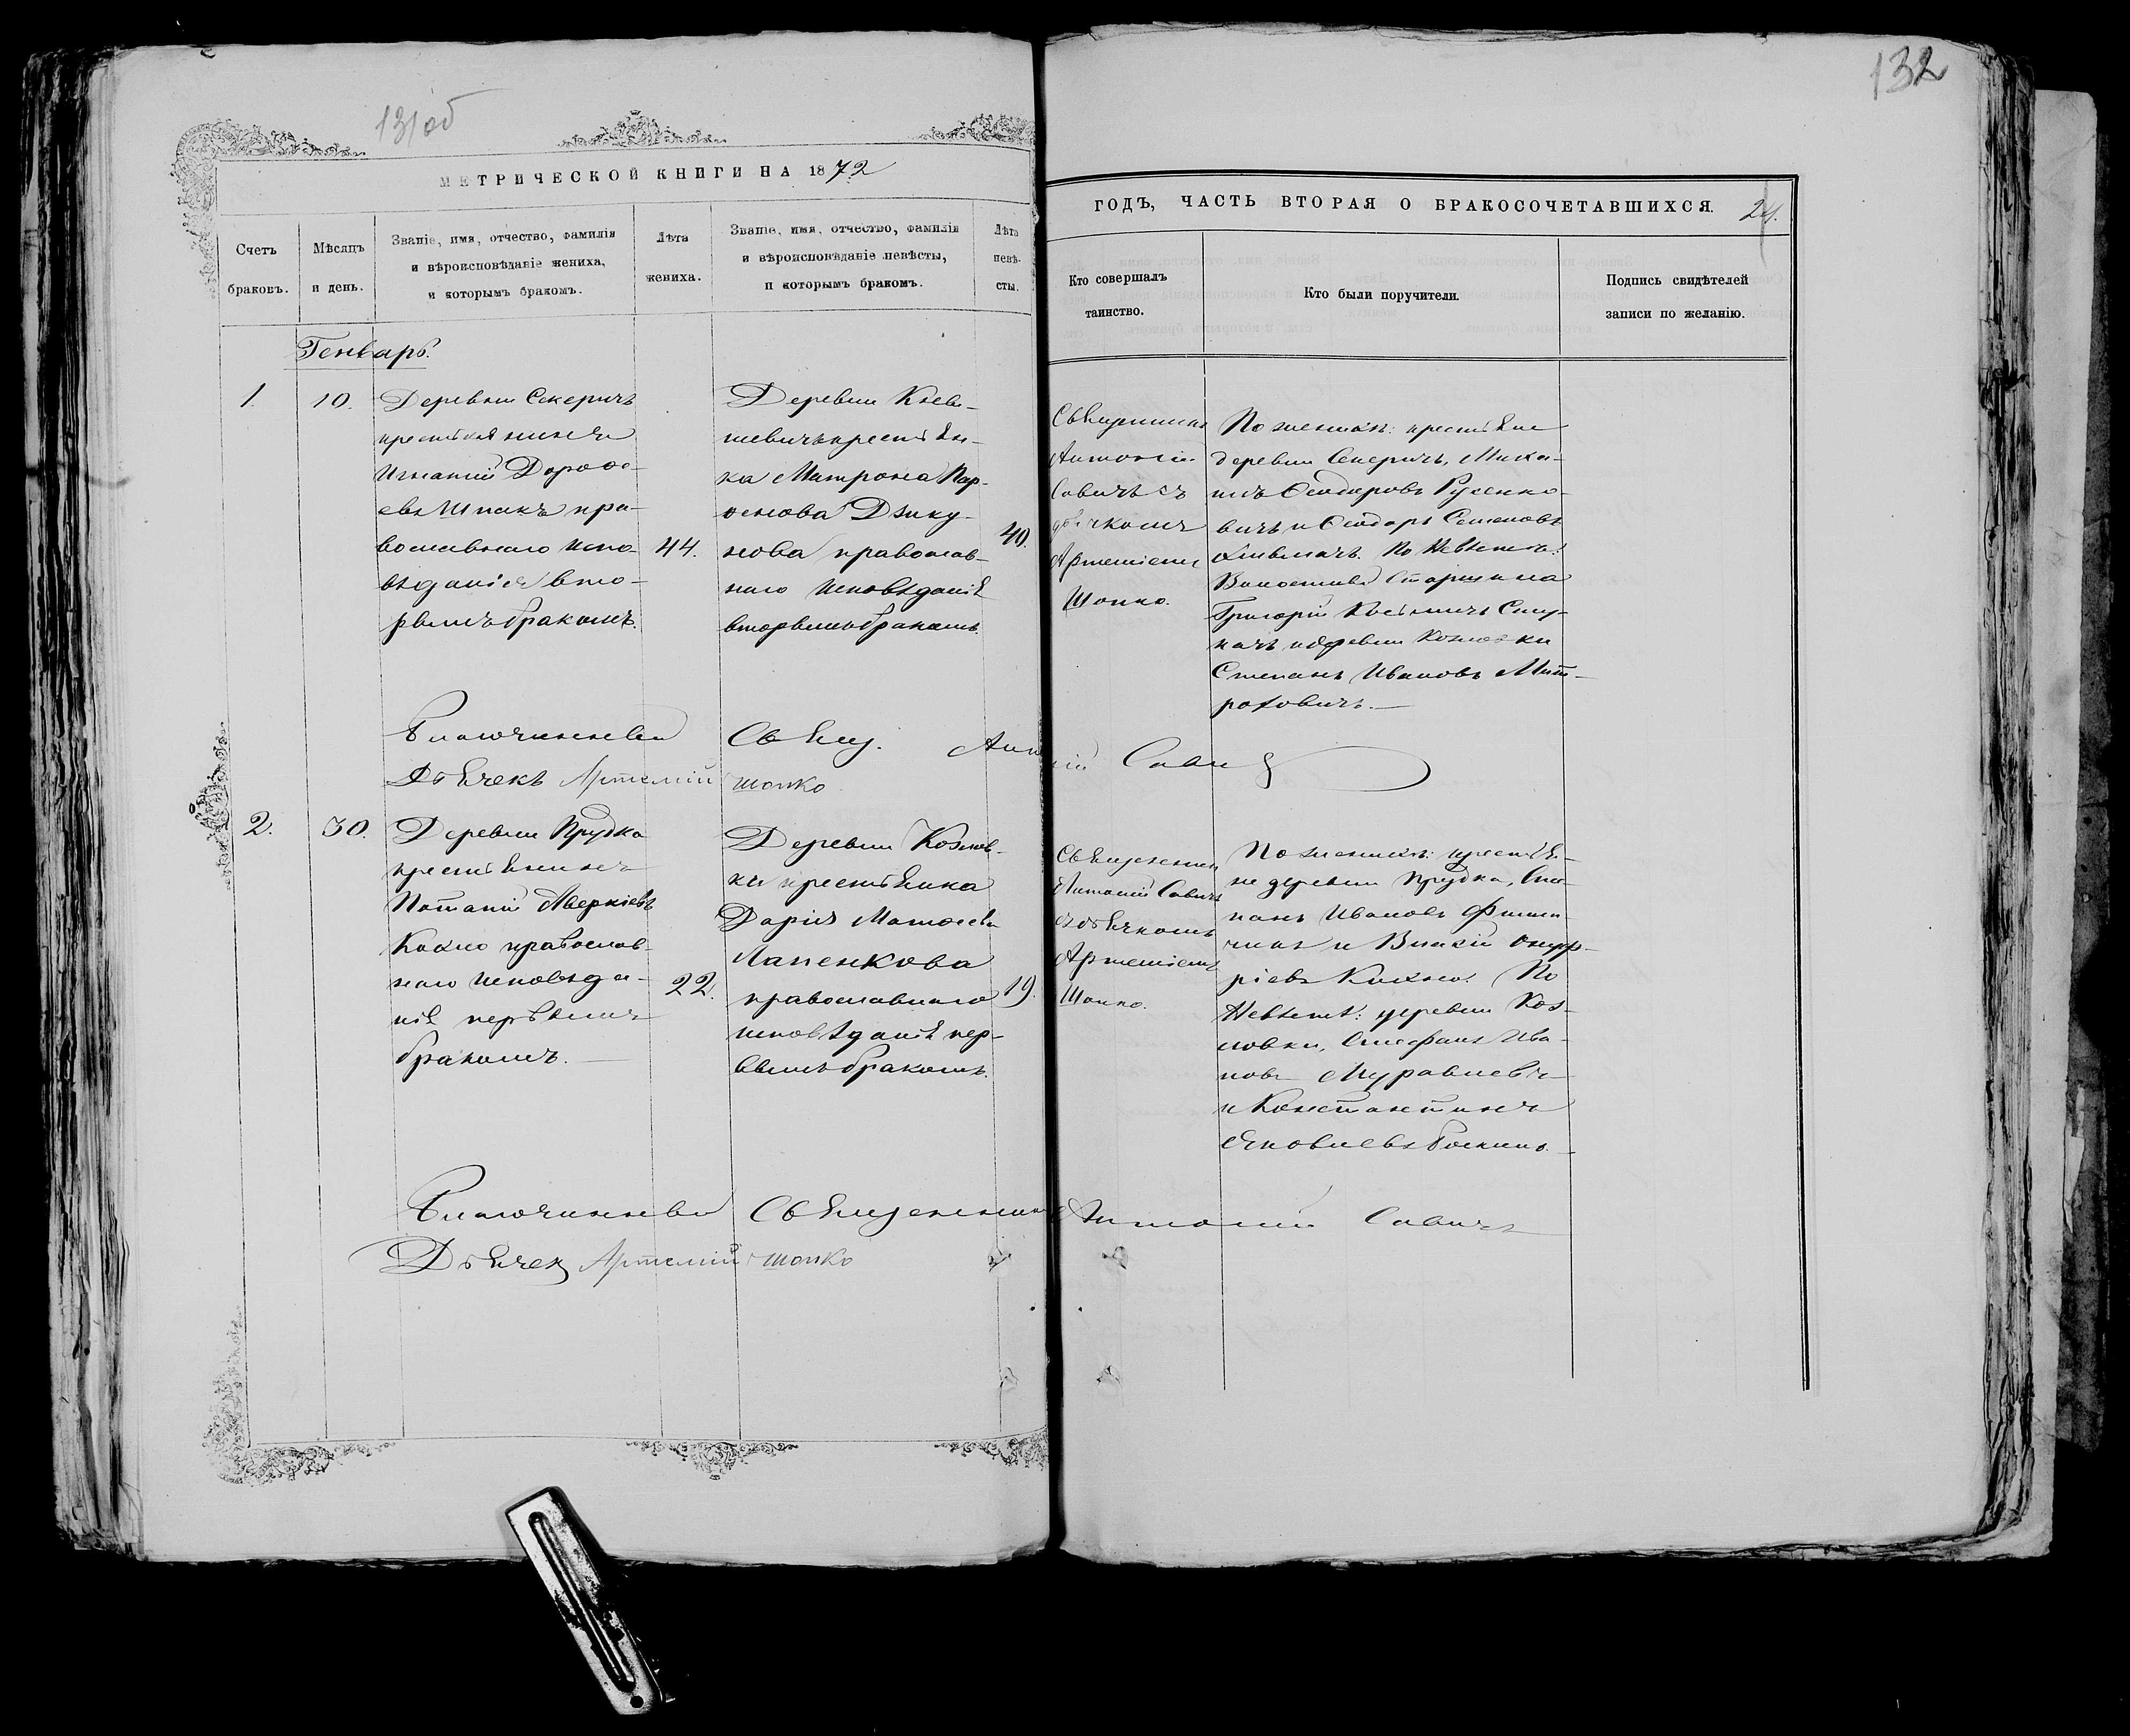 131об
132
МЕТРИЧЕСКОЙ КНИГИ НА 1872
ГОДЪ, ЧАСТЬ ВТОРАЯ О БРАКОСОЧЕТАВШИХСЯ.
24.
Счетъ
браковъ.
Мѣсяцъ
и день.
Званіе, имя, отчество, фамилія
и вѣроисповѣданіе жениха,
и которымъ бракомъ.
Лѣта
жениха.
Званіе, имя, отчество, фамилія
и вѣроисповѣданіе невѣсты,
и которымъ бракомъ.
Лѣта
невѣ-
сты.
Кто совершалъ
таинство.
Кто были поручители.
Подпись свидѣтелей
записи по желанію.
Генварь.
1
10.
Деревни Секеричъ
крестьянинъ
Игнатій Дорофе-
евъ Шпакъ пра-
вославнаго испо-
вѣданія вто-
рымъ бракомъ.
44.
Деревни
крестьян-
ка Матрона Пар-
фенова Дзику-
нова православ-
наго исповѣданія
вторымъ бракомъ.
40.
Священникъ
Антоній
Савичъ съ
дьячкомъ
Артеміемъ
Шопко.
По женихѣ: крестьяне
деревни Секеричъ, Миха-
илъ Ѳеодоровъ Русенко-
вичъ и Ѳеодоръ Семеновъ
По Невѣстѣ:
Волостный Старшина
Григорій
и деревни Козловки
Степанъ Ивановъ Мит-
роховичъ.
Благочинный Свящ. Антоній Савичъ
Дьячекъ Артемій Шопко
2.
30.
Деревни Прудка
крестьянинъ
Потапій Аверкіевъ
Кохно православ-
наго исповѣда-
нія первымъ
бракомъ.
22.
Деревни Козлов-
ки крестьянка
Дарія Матѳеева
Лапенкова
православнаго
исповѣданія пер-
вымъ бракомъ.
19.
Священникъ
Антоній Савичъ
съ дьячкомъ
Артеміемъ
Шопко.
По женихѣ: крестья-
не деревни Прудка, Сте-
панъ Ивановъ
и Власій Онуф-
ріевъ Кохно. По
Невѣстѣ: деревни Коз-
ловки, Стефанъ Ива-
новъ Муравлевъ
и Константинъ
Яковлевъ
Благочинный Священникъ Антоній Савичъ
Дьячекъ Артемій Шопко